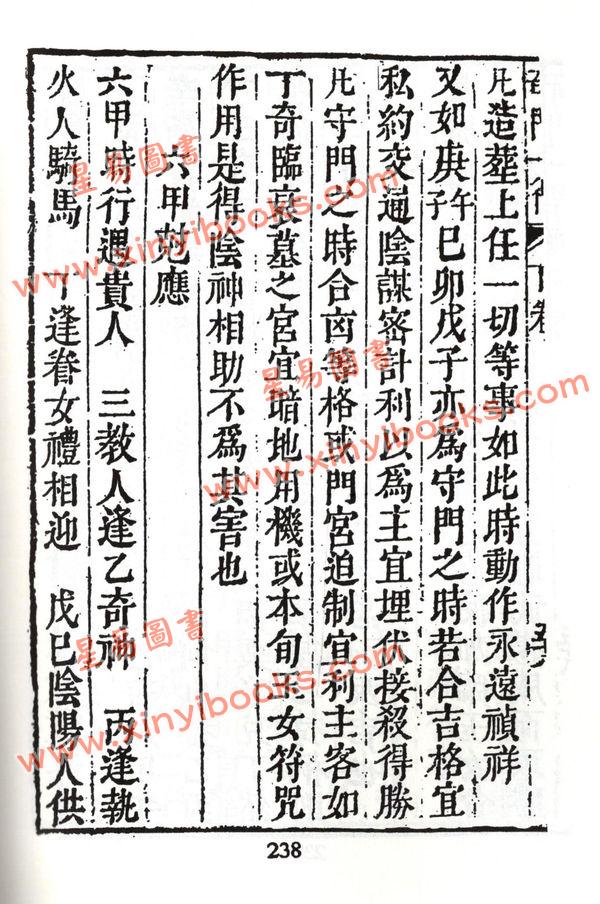 凡造葬上任一切等事如此時動作永遠禎祥
又如庚午子巳卯戊子亦爲守門之時若合吉格宜
私約交通陰謀密計利以爲主宜埋伏接殺得勝
凡守門之時合凶等格或門宮迫制宜利主客如
丁奇臨衰墓之宮宜暗地用機或本旬玉女符咒
作用是得陰神相助不爲其害也
六甲尅應
六甲時行遇貴人　三教人逢乙奇神　丙逢執
火人騎馬　丁逢眷女禮相迎　戊巳陰陽人供
238
星易圖書
www.xinyibooks.com
星易圖書
www.xinyibooks.com
星易圖書
www.xinyibooks.com